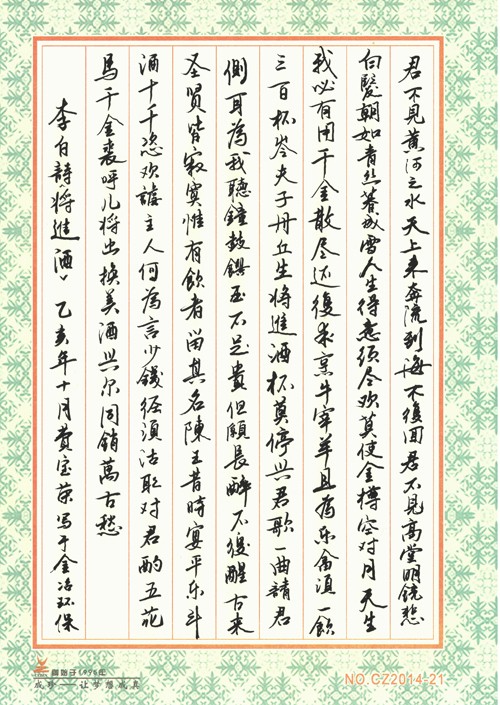 君不見黄河之水天上来奔流到海不復回君不見高堂明鏡悲
白髮朝如青丝暮成雪人生得意须尽欢莫使金樽空对月天生
我必有用千金散尽还復来烹牛宰羊且為乐會須一飲
三百杯岑夫子丹丘生将進酒杯莫停与君歌一曲請君
側耳為我聽鐘鼓饌玉不足貴但願長醉不復醒古来
圣贤皆寂寞惟有飲者留其名陳王昔時宴平乐斗
酒十千恣欢謔主人何為言少錢径須沽取对君酌五花
馬千金裘呼儿将出换美酒与尔同銷萬古愁
李白詩《将進酒》乙亥年十月费宝荣写于金冶环保
1996年
成珍——让梦想成真
NO.CZ2014-21